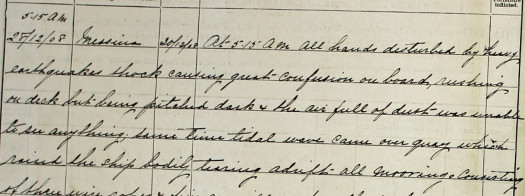 5.15 AM
28/12/08 Messina 28/12/08 At 5.15 AM all hands disturbed by heavy
earthquakes shock causing great confusion on board, rushing
on deck but being pitched dark & the air full of dust was unable
to see anything. same time tidal wave came over quay which
raised the ship bodily tearing adrift all moorings Consisting
of three wire ropes &
inflicted.